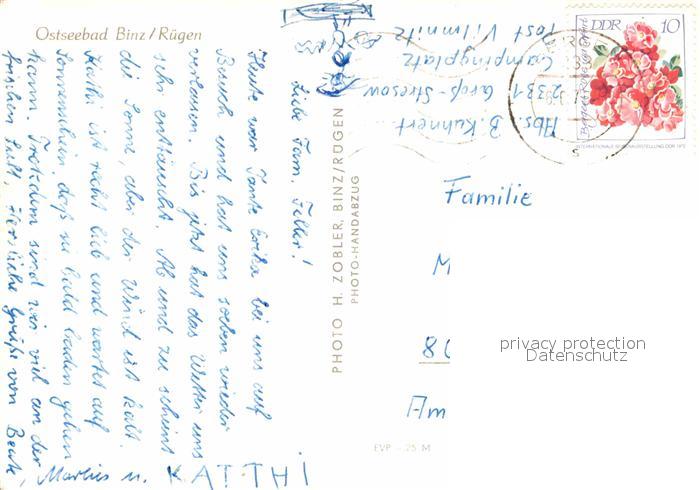 Ostseebad Binz/Rügen
Liebe Fam. Feller!
Heute war Tante Erika bei uns auf
Besuch und hat uns soeben wieder
verlassen. Bis jetzt hat das Wetter uns
sehr enttäuscht. Ab und zu scheint
die Sonne, aber der Wind ist kalt.
Kathi ist recht lieb und wartet auf
Sonnenschein, daß sie bald baden gehen
kann. Trotzdem sind wir viel an der
frischen Luft. Herzliche Grüße von Beate,
Marlies u. KATTHI
PHOTO H. ZOBLER, BINZ/RÜGEN
PHOTO-HANDABZUG
EVP - 25 M
Abs. B. Kuhnert
2331 Groß-Stresow
Campingplatz
Post Vilmnitz
DDR 10
INTERNATIONALE ROSENAUSSTELLUNG DDR 1972
Familie
M
8
Am
privacy protection
Datenschutz